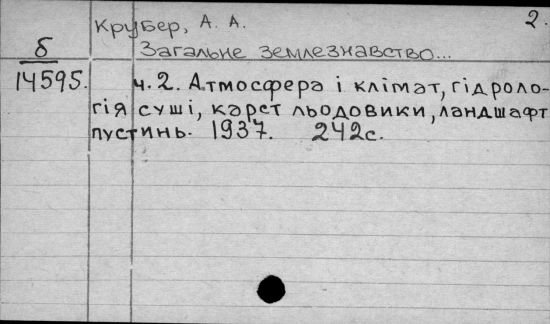 Крубер, А. А. 2.
Б Загальне землезнавство...
14595. ч. 2. Атмосфера і клімат, гідроло-
гія суші, карст льодовики, ландшафт
пустинь. 1937. 242с.